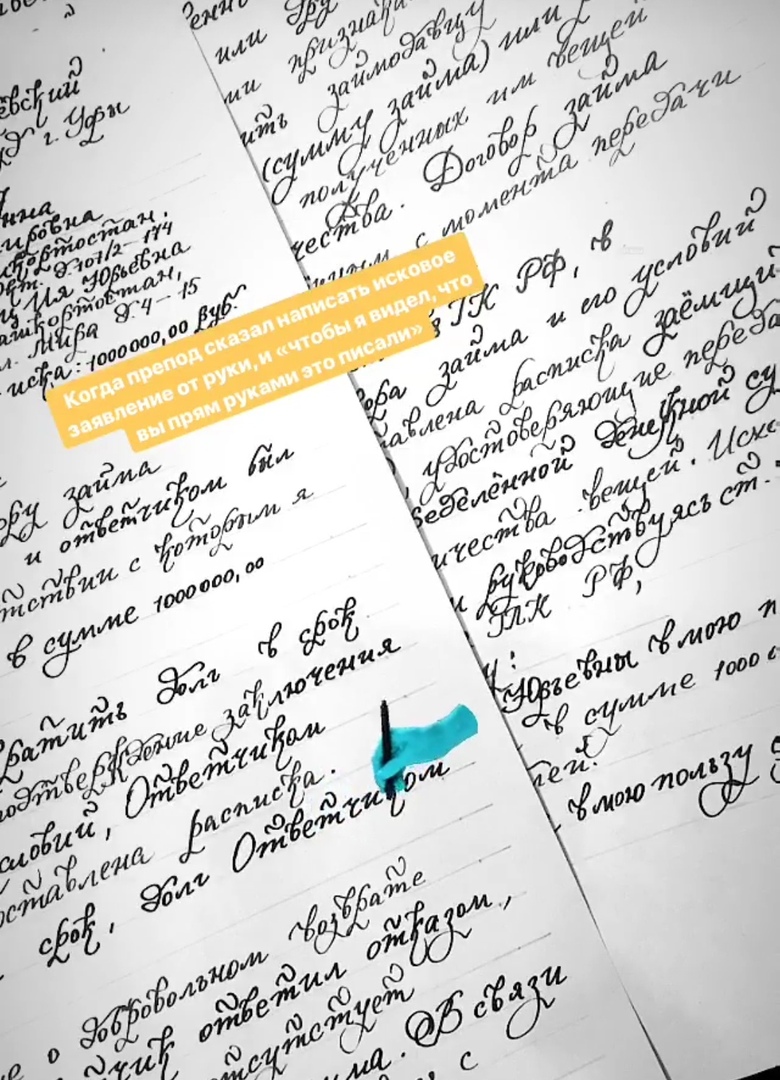 ёвский
г. Уфы
нна
ировна
кортостан,
д 101/2-174
ц Ия Юрьевна
ашкортостан,
л. Мира д 4-15
иска: 1000000,00 руб.
займа
и ответчиком был
тствии с которым я
в сумме 1000000,00
вратить долг в срок
подтверждение заключения
словий, Ответчиком
оставлена расписка.
срок, долг Ответчиком
е о добровольном возврате
тчик ответил отказом,
тсутствует
ма. В связи
с
Когда препод сказал написать исковое
заявление от руки, и «чтобы я видел, что
вы прям руками это писали»
или
ми признаками
ить займодавцу
(сумму займа) или
полученных им вещей
чества. Договор займа
с момента передачи
ГК РФ, в
ора займа и его условий
тавлена расписка заёмщи
, удостоверяющие переда
ределённой денежной су
ичества вещей. Исхо
и руководствуясь ст.
ГПК РФ,
у:
Юрьевны в мою п
в сумме 1000
лей.
в мою пользу